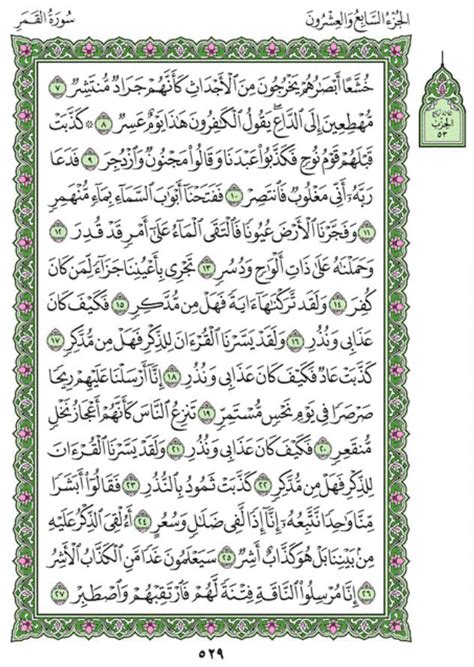 الجُزْءُ السَّابِعُ وَالعِشْرُونَ
سُورَةُ القَمَر
الحِزْب
٥٣
خُشَّعًا أَبْصَٰرُهُمْ يَخْرُجُونَ مِنَ ٱلْأَجْدَاثِ كَأَنَّهُمْ جَرَادٌ مُّنتَشِرٌ ٧
مُّهْطِعِينَ إِلَى ٱلدَّاعِ ۖ يَقُولُ ٱلْكَٰفِرُونَ هَٰذَا يَوْمٌ عَسِرٌ ٨ ۞ كَذَّبَتْ
قَبْلَهُمْ قَوْمُ نُوحٍ فَكَذَّبُوا۟ عَبْدَنَا وَقَالُوا۟ مَجْنُونٌ وَٱزْدُجِرَ ٩ فَدَعَا
رَبَّهُۥٓ أَنِّى مَغْلُوبٌ فَٱنتَصِرْ ١٠ فَفَتَحْنَآ أَبْوَٰبَ ٱلسَّمَآءِ بِمَآءٍ مُّنْهَمِرٍ
١١ وَفَجَّرْنَا ٱلْأَرْضَ عُيُونًا فَٱلْتَقَى ٱلْمَآءُ عَلَىٰٓ أَمْرٍ قَدْ قُدِرَ ١٢
وَحَمَلْنَٰهُ عَلَىٰ ذَاتِ أَلْوَٰحٍ وَدُسُرٍ ١٣ تَجْرِى بِأَعْيُنِنَا جَزَآءً لِّمَن كَانَ
كُفِرَ ١٤ وَلَقَد تَّرَكْنَٰهَآ ءَايَةً فَهَلْ مِن مُّدَّكِرٍ ١٥ فَكَيْفَ كَانَ
عَذَابِى وَنُذُرِ ١٦ وَلَقَدْ يَسَّرْنَا ٱلْقُرْءَانَ لِلذِّكْرِ فَهَلْ مِن مُّدَّكِرٍ ١٧
كَذَّبَتْ عَادٌ فَكَيْفَ كَانَ عَذَابِى وَنُذُرِ ١٨ إِنَّآ أَرْسَلْنَا عَلَيْهِمْ رِيحًا
صَرْصَرًا فِى يَوْمِ نَحْسٍ مُّسْتَمِرٍّ ١٩ تَنزِعُ ٱلنَّاسَ كَأَنَّهُمْ أَعْجَازُ نَخْلٍ
مُّنقَعِرٍ ٢٠ فَكَيْفَ كَانَ عَذَابِى وَنُذُرِ ٢١ وَلَقَدْ يَسَّرْنَا ٱلْقُرْءَانَ
لِلذِّكْرِ فَهَلْ مِن مُّدَّكِرٍ ٢٢ كَذَّبَتْ ثَمُودُ بِٱلنُّذُرِ ٢٣ فَقَالُوٓا۟ أَبَشَرًا
مِّنَّا وَٰحِدًا نَّتَّبِعُهُۥٓ إِنَّآ إِذًا لَّفِى ضَلَٰلٍ وَسُعُرٍ ٢٤ أَءُلْقِىَ ٱلذِّكْرُ عَلَيْهِ
مِنۢ بَيْنِنَا بَلْ هُوَ كَذَّابٌ أَشِرٌ ٢٥ سَيَعْلَمُونَ غَدًا مَّنِ ٱلْكَذَّابُ ٱلْأَشِرُ
٢٦ إِنَّا مُرْسِلُوا۟ ٱلنَّاقَةِ فِتْنَةً لَّهُمْ فَٱرْتَقِبْهُمْ وَٱصْطَبِرْ ٢٧
٥٢٩